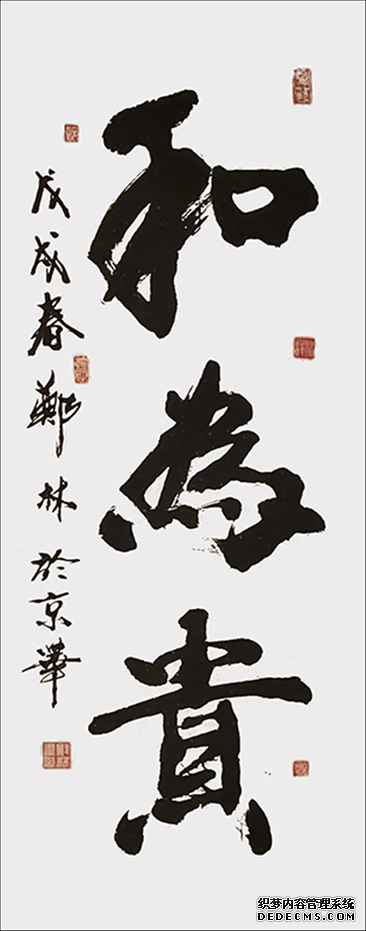 和為貴
戊戌春鄭林於京華
织梦内容管理系统
DEDECMS.COM